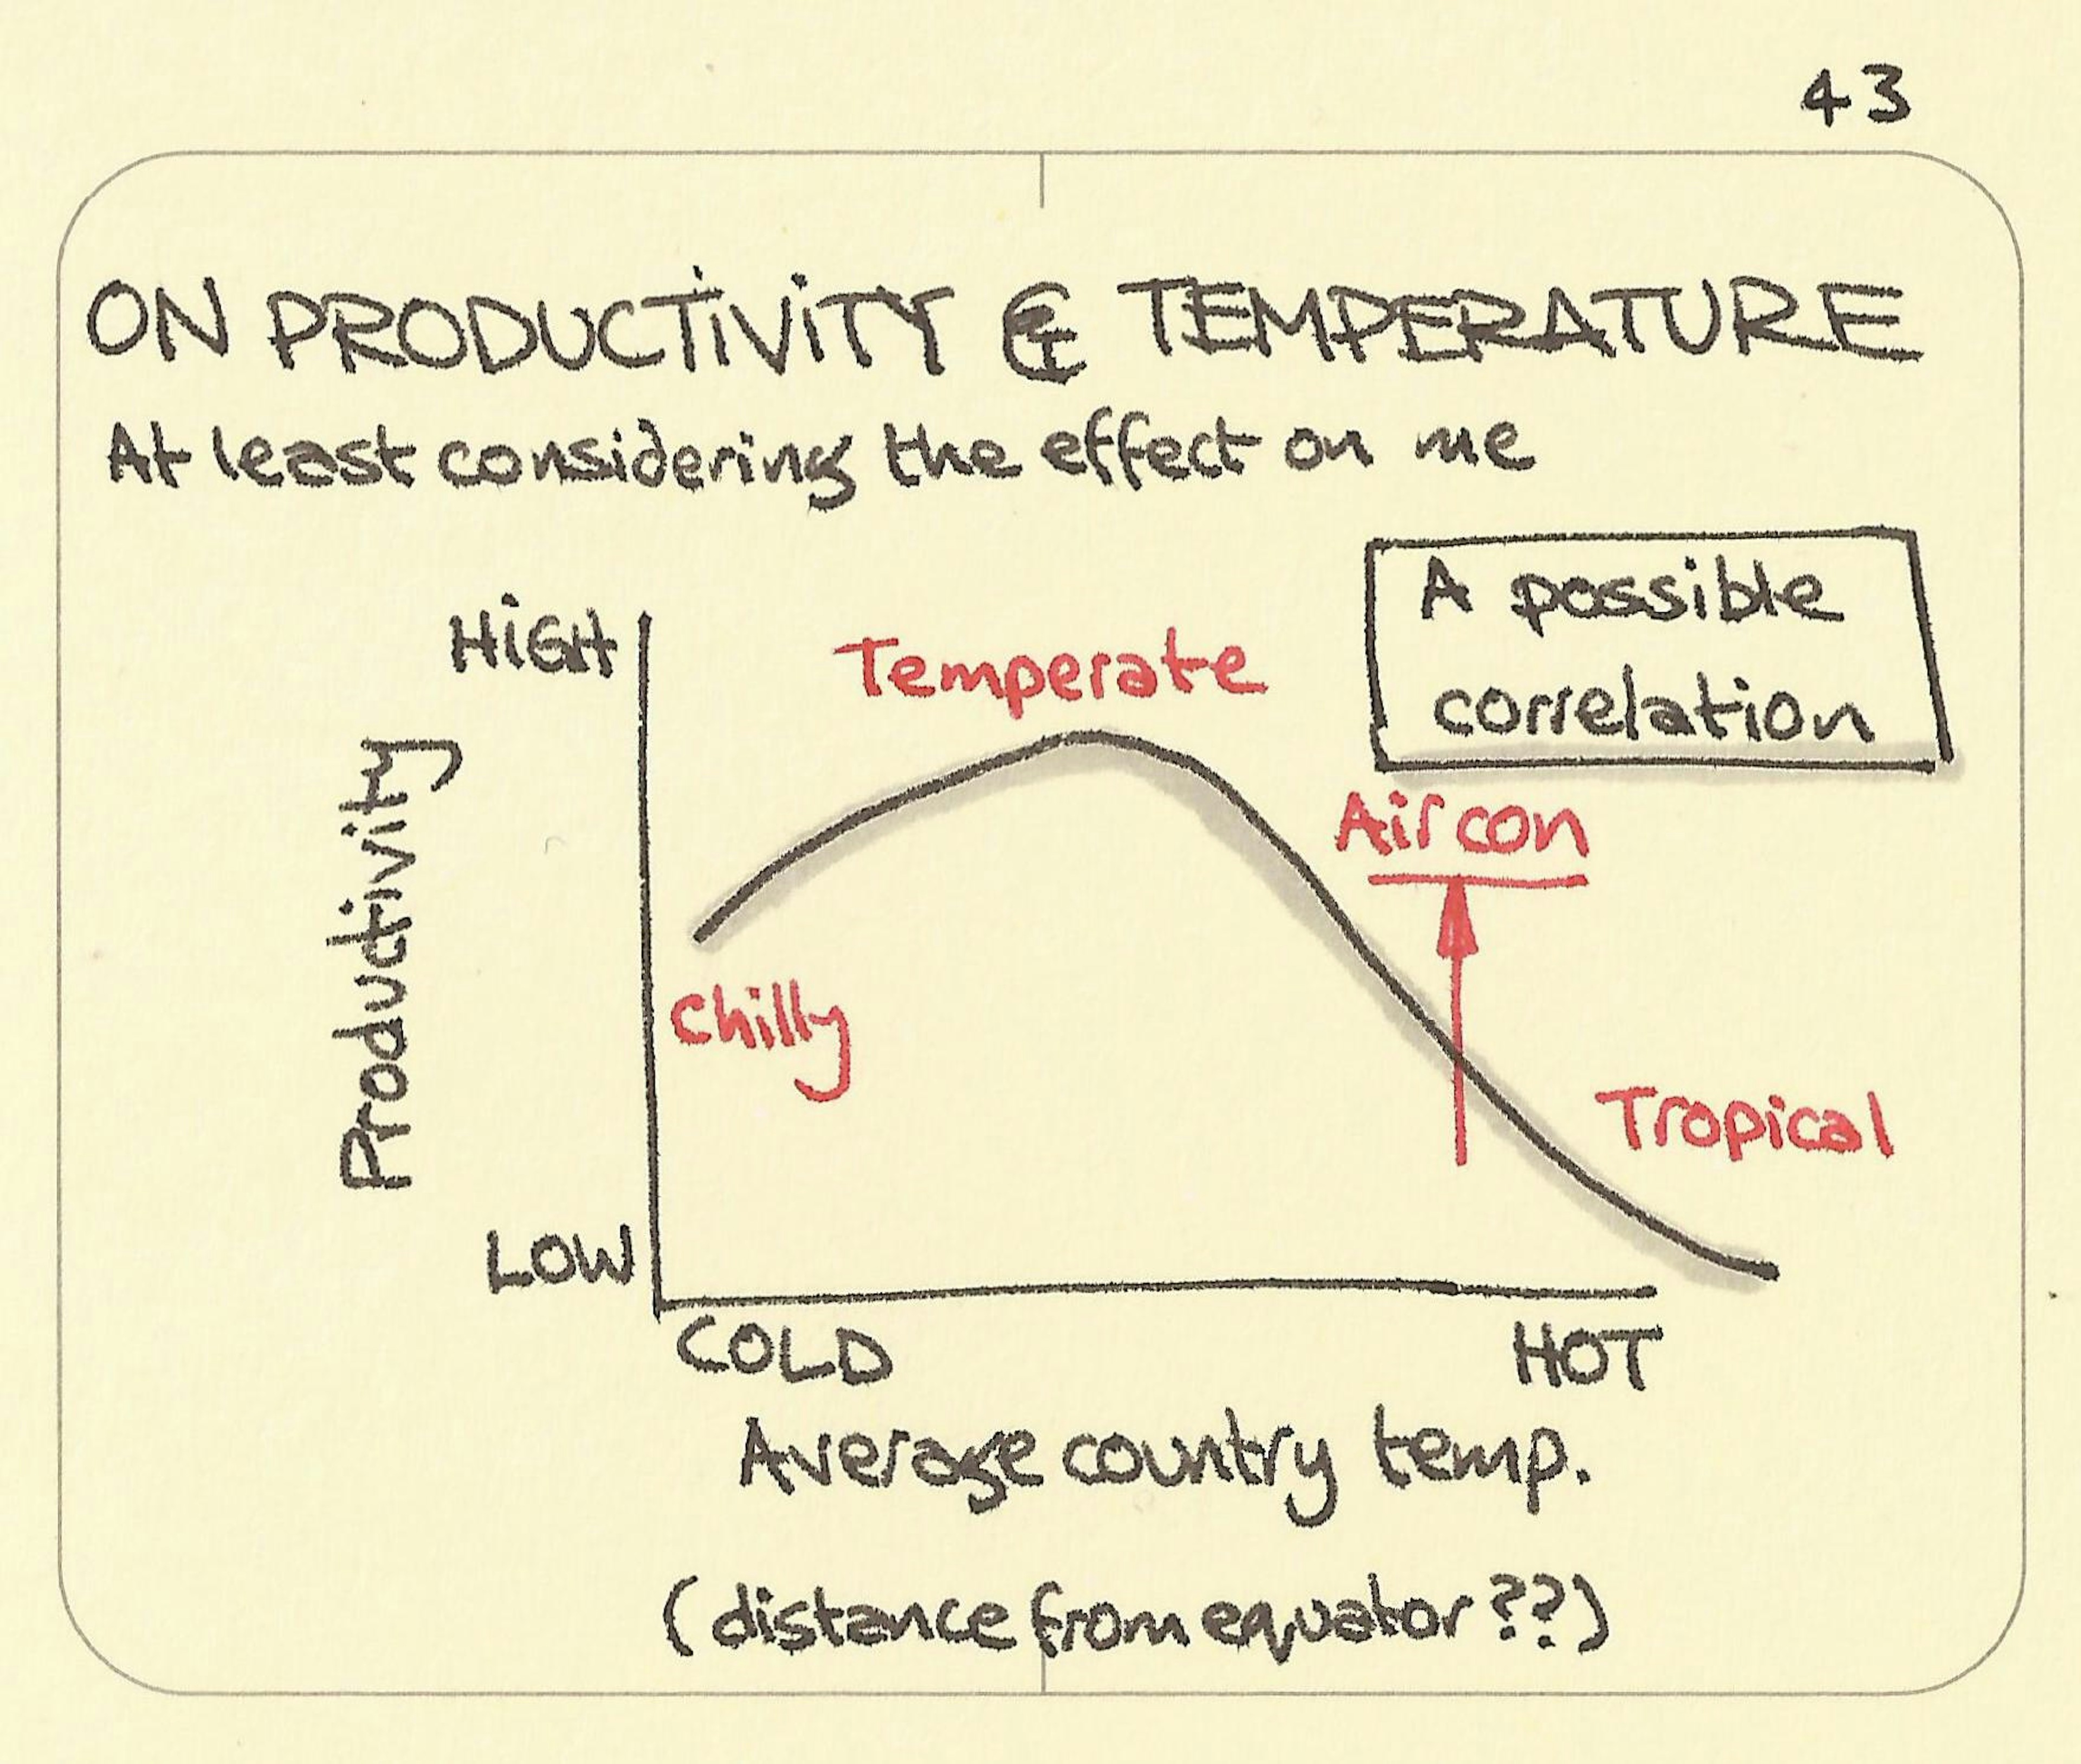 43
ON PRODUCTIVITY & TEMPERATURE
At least considering the effect on me
A possible
correlation
HIGH
Temperate
Aircon
Productivity
Chilly
Tropical
LOW
COLD
HOT
Average country temp.
(distance from equator??)